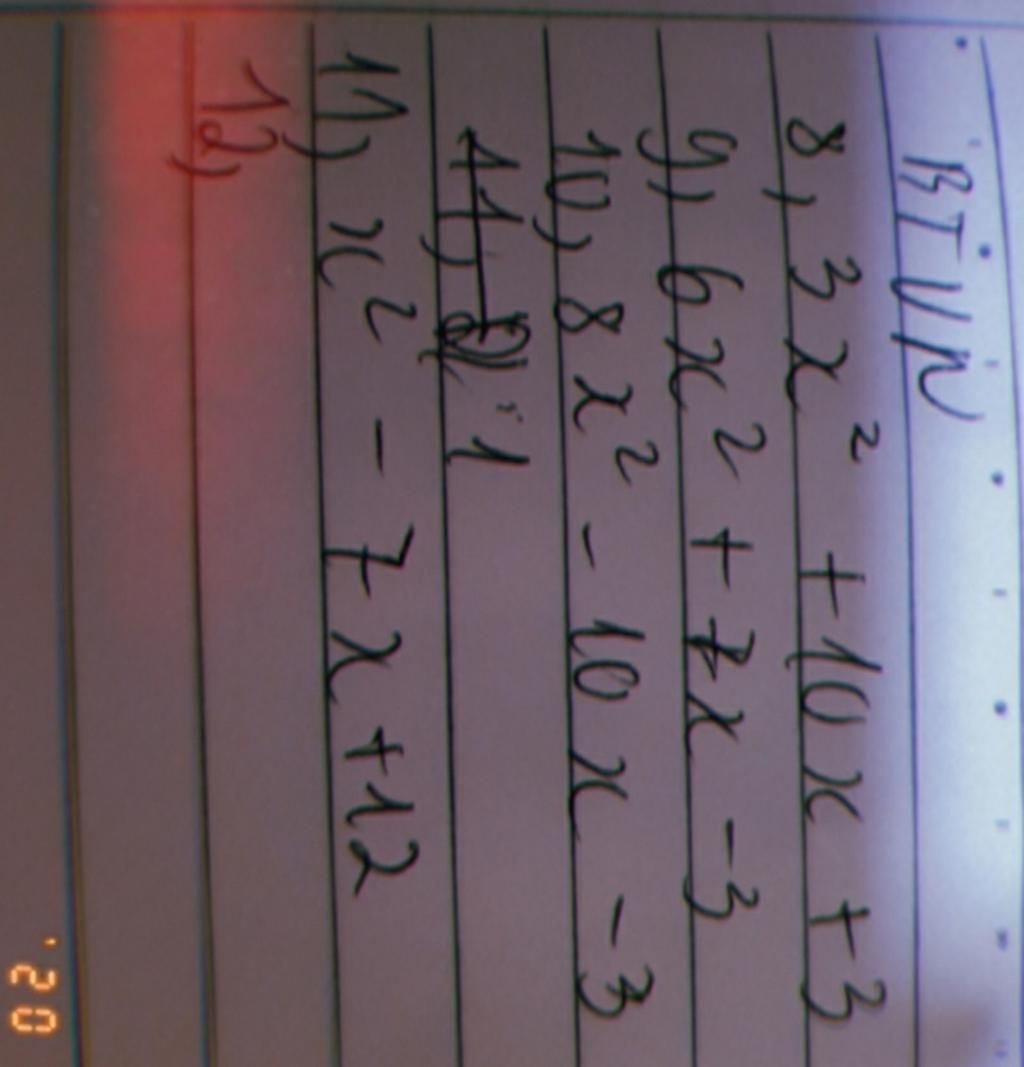 BTVN
8, 3x² + 10x + 3
9, 6x² + 7x - 3
10, 8x² - 10x - 3
11, 1
11, x² - 7x + 12
12,
'20